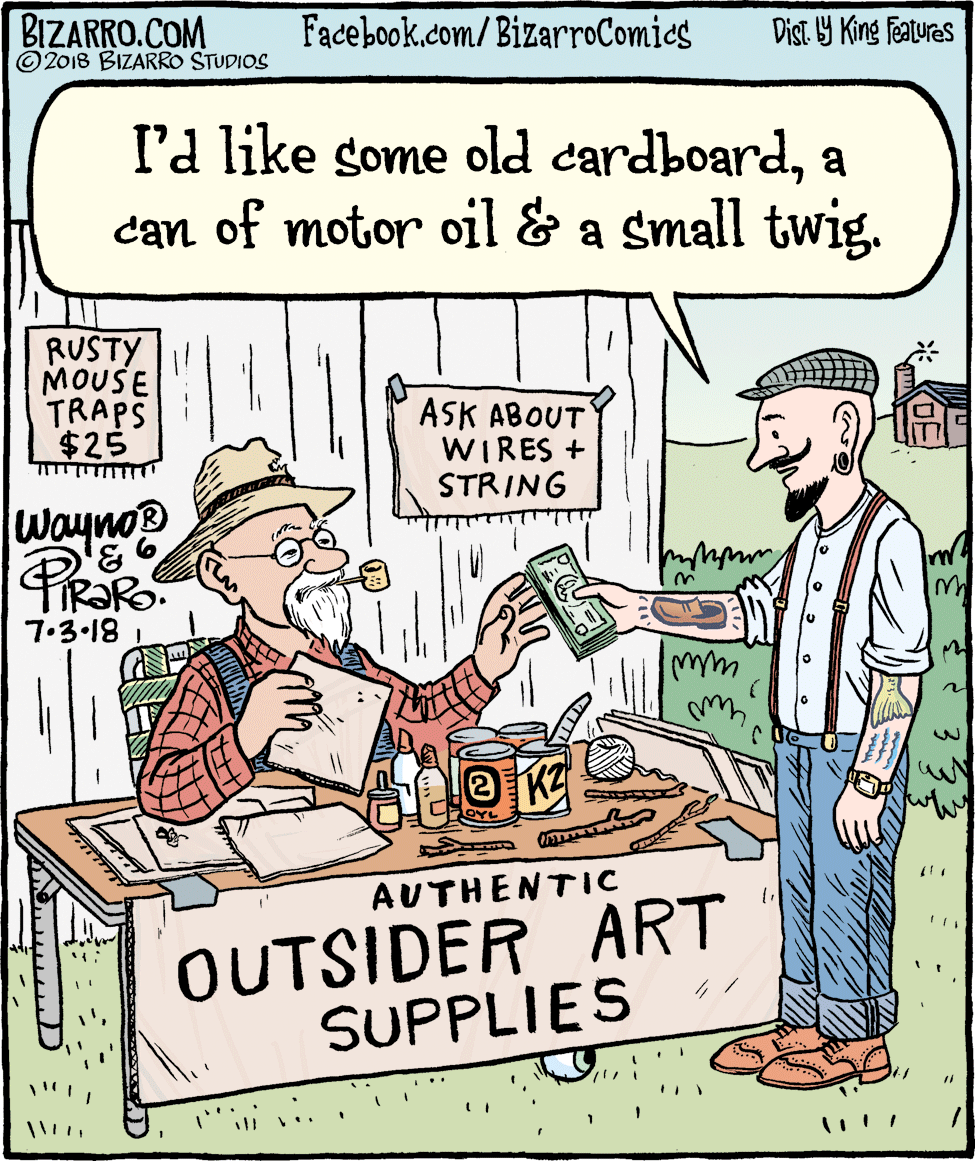 BIZARRO.COM
© 2018 BIZARRO STUDIOS
Facebook.com/BizarroComics
Dist. by King Features
I'd like some old cardboard, a
can of motor oil & a small twig.
RUSTY
MOUSE
TRAPS
$25
ASK ABOUT
WIRES +
STRING
Wayno®
& 6
PIRARO.
7•3•18
2
OYL
K2
AUTHENTIC
OUTSIDER ART
SUPPLIES